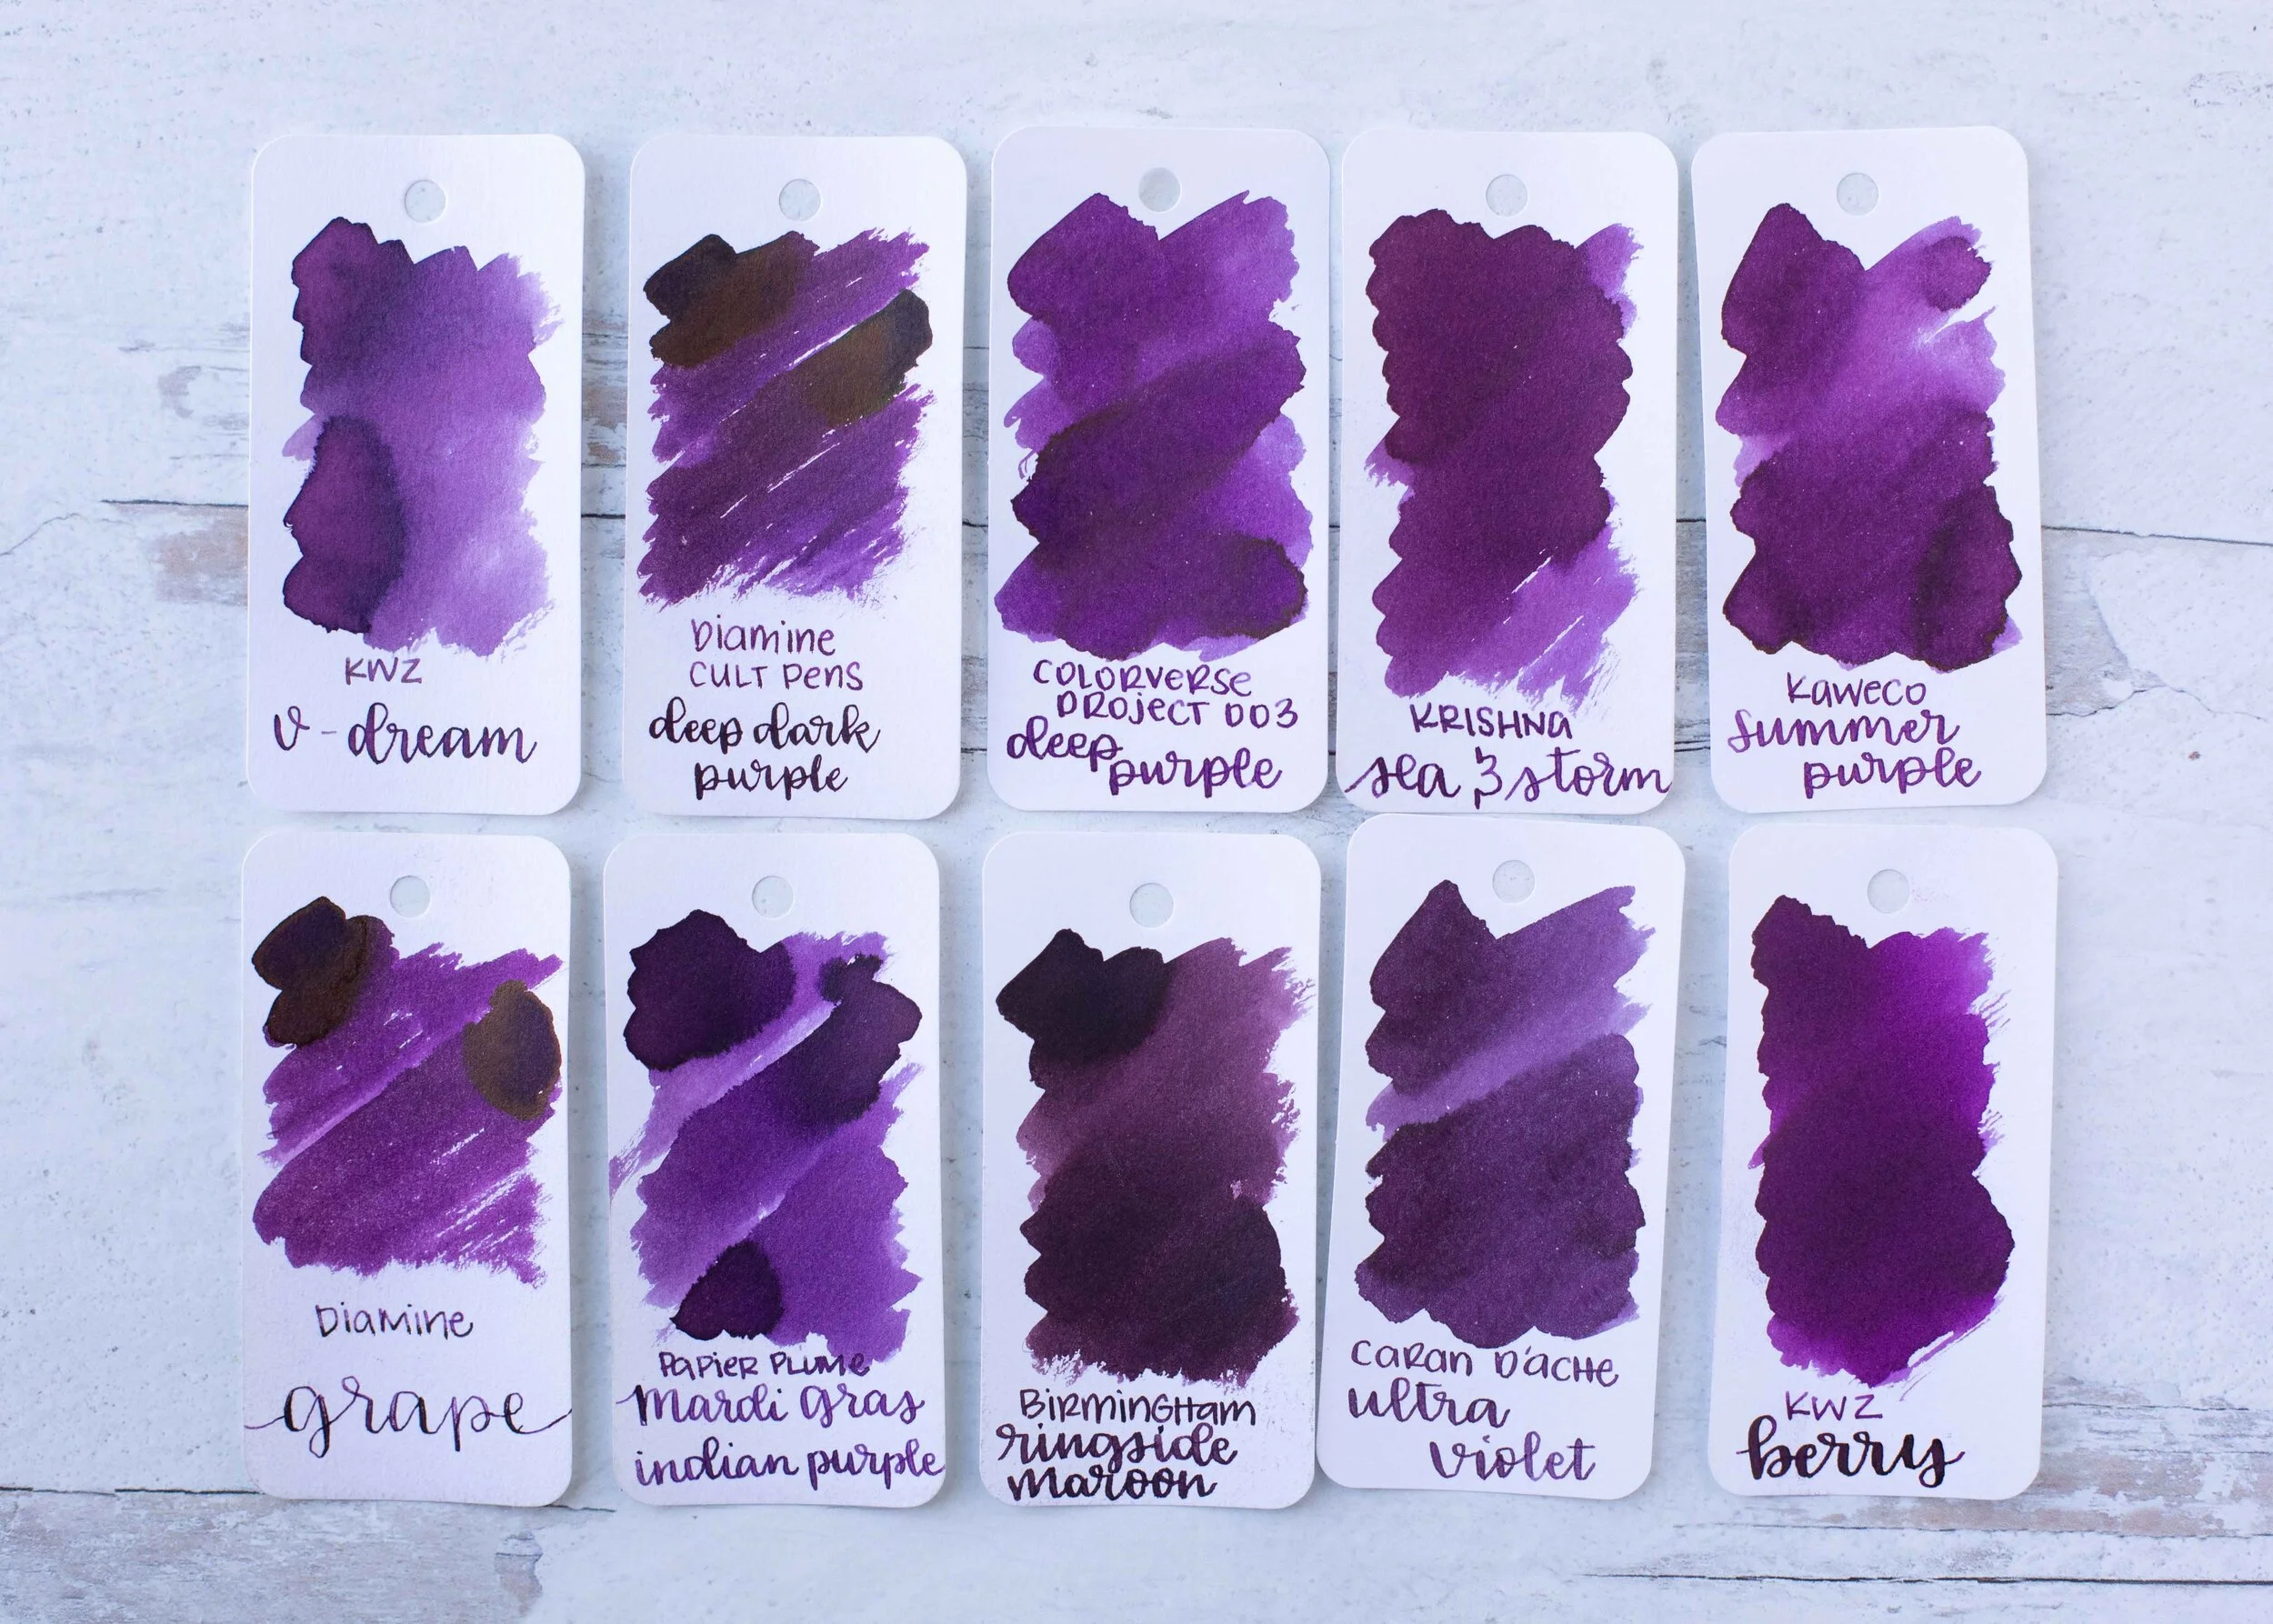 KWZ
v-dream
Diamine
CULT Pens
deep dark
purple
COLORVERSE
PROJECT 003
deep
purple
KRISHNA
sea & storm
Kaweco
Summer
purple
Diamine
grape
Papier Plume
Mardi Gras
indian purple
BiRminGHam
ringside
maroon
CaRan D'ACHe
ultra
violet
KWZ
berry